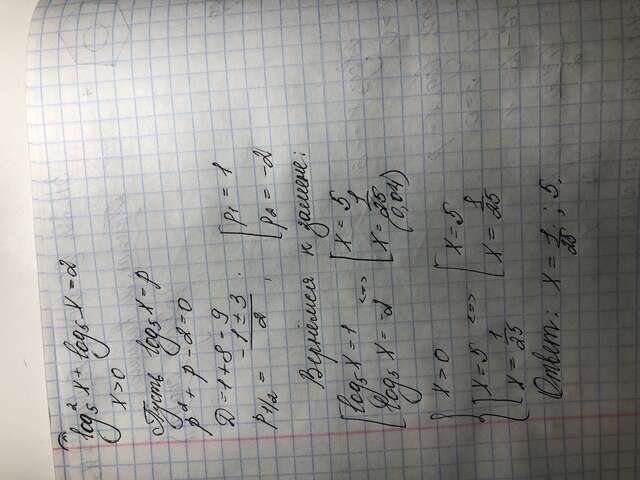 log₅² x + log₅ x = 2
x > 0
Пусть log₅ x = p
p² + p - 2 = 0
D = 1 + 8 = 9
p₁/₂ = (-1 ± 3)/2 ; [ p₁ = 1
[ p₂ = -2
Вернёмся к замене:
[ log₅ x = 1 <=> [ x = 5
[ log₅ x = -2 [ x = 1/25
(0,04)
{ x > 0
{ [ x = 5 <=> [ x = 5
[ x = 1/25 [ x = 1/25
Ответ: x = 1/25 ; 5.